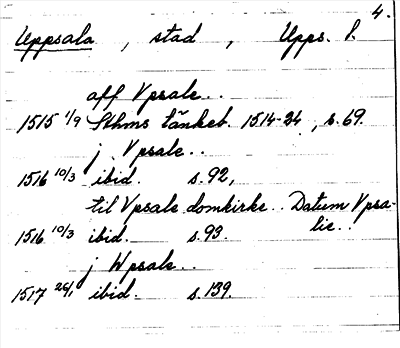 4.
Uppsala, stad, Upps. l.
aff Vpsale..
1515 1/9 Sthms tänkeb. 1514-24, s. 69.
j Vpsale..
1516 10/3 ibid. s. 92,
til Vpsale domkirke.. Datum Vpsa-
lie..
1516 10/3 ibid. s. 93.
j Wpsale..
1517 26/1 ibid. s. 139.